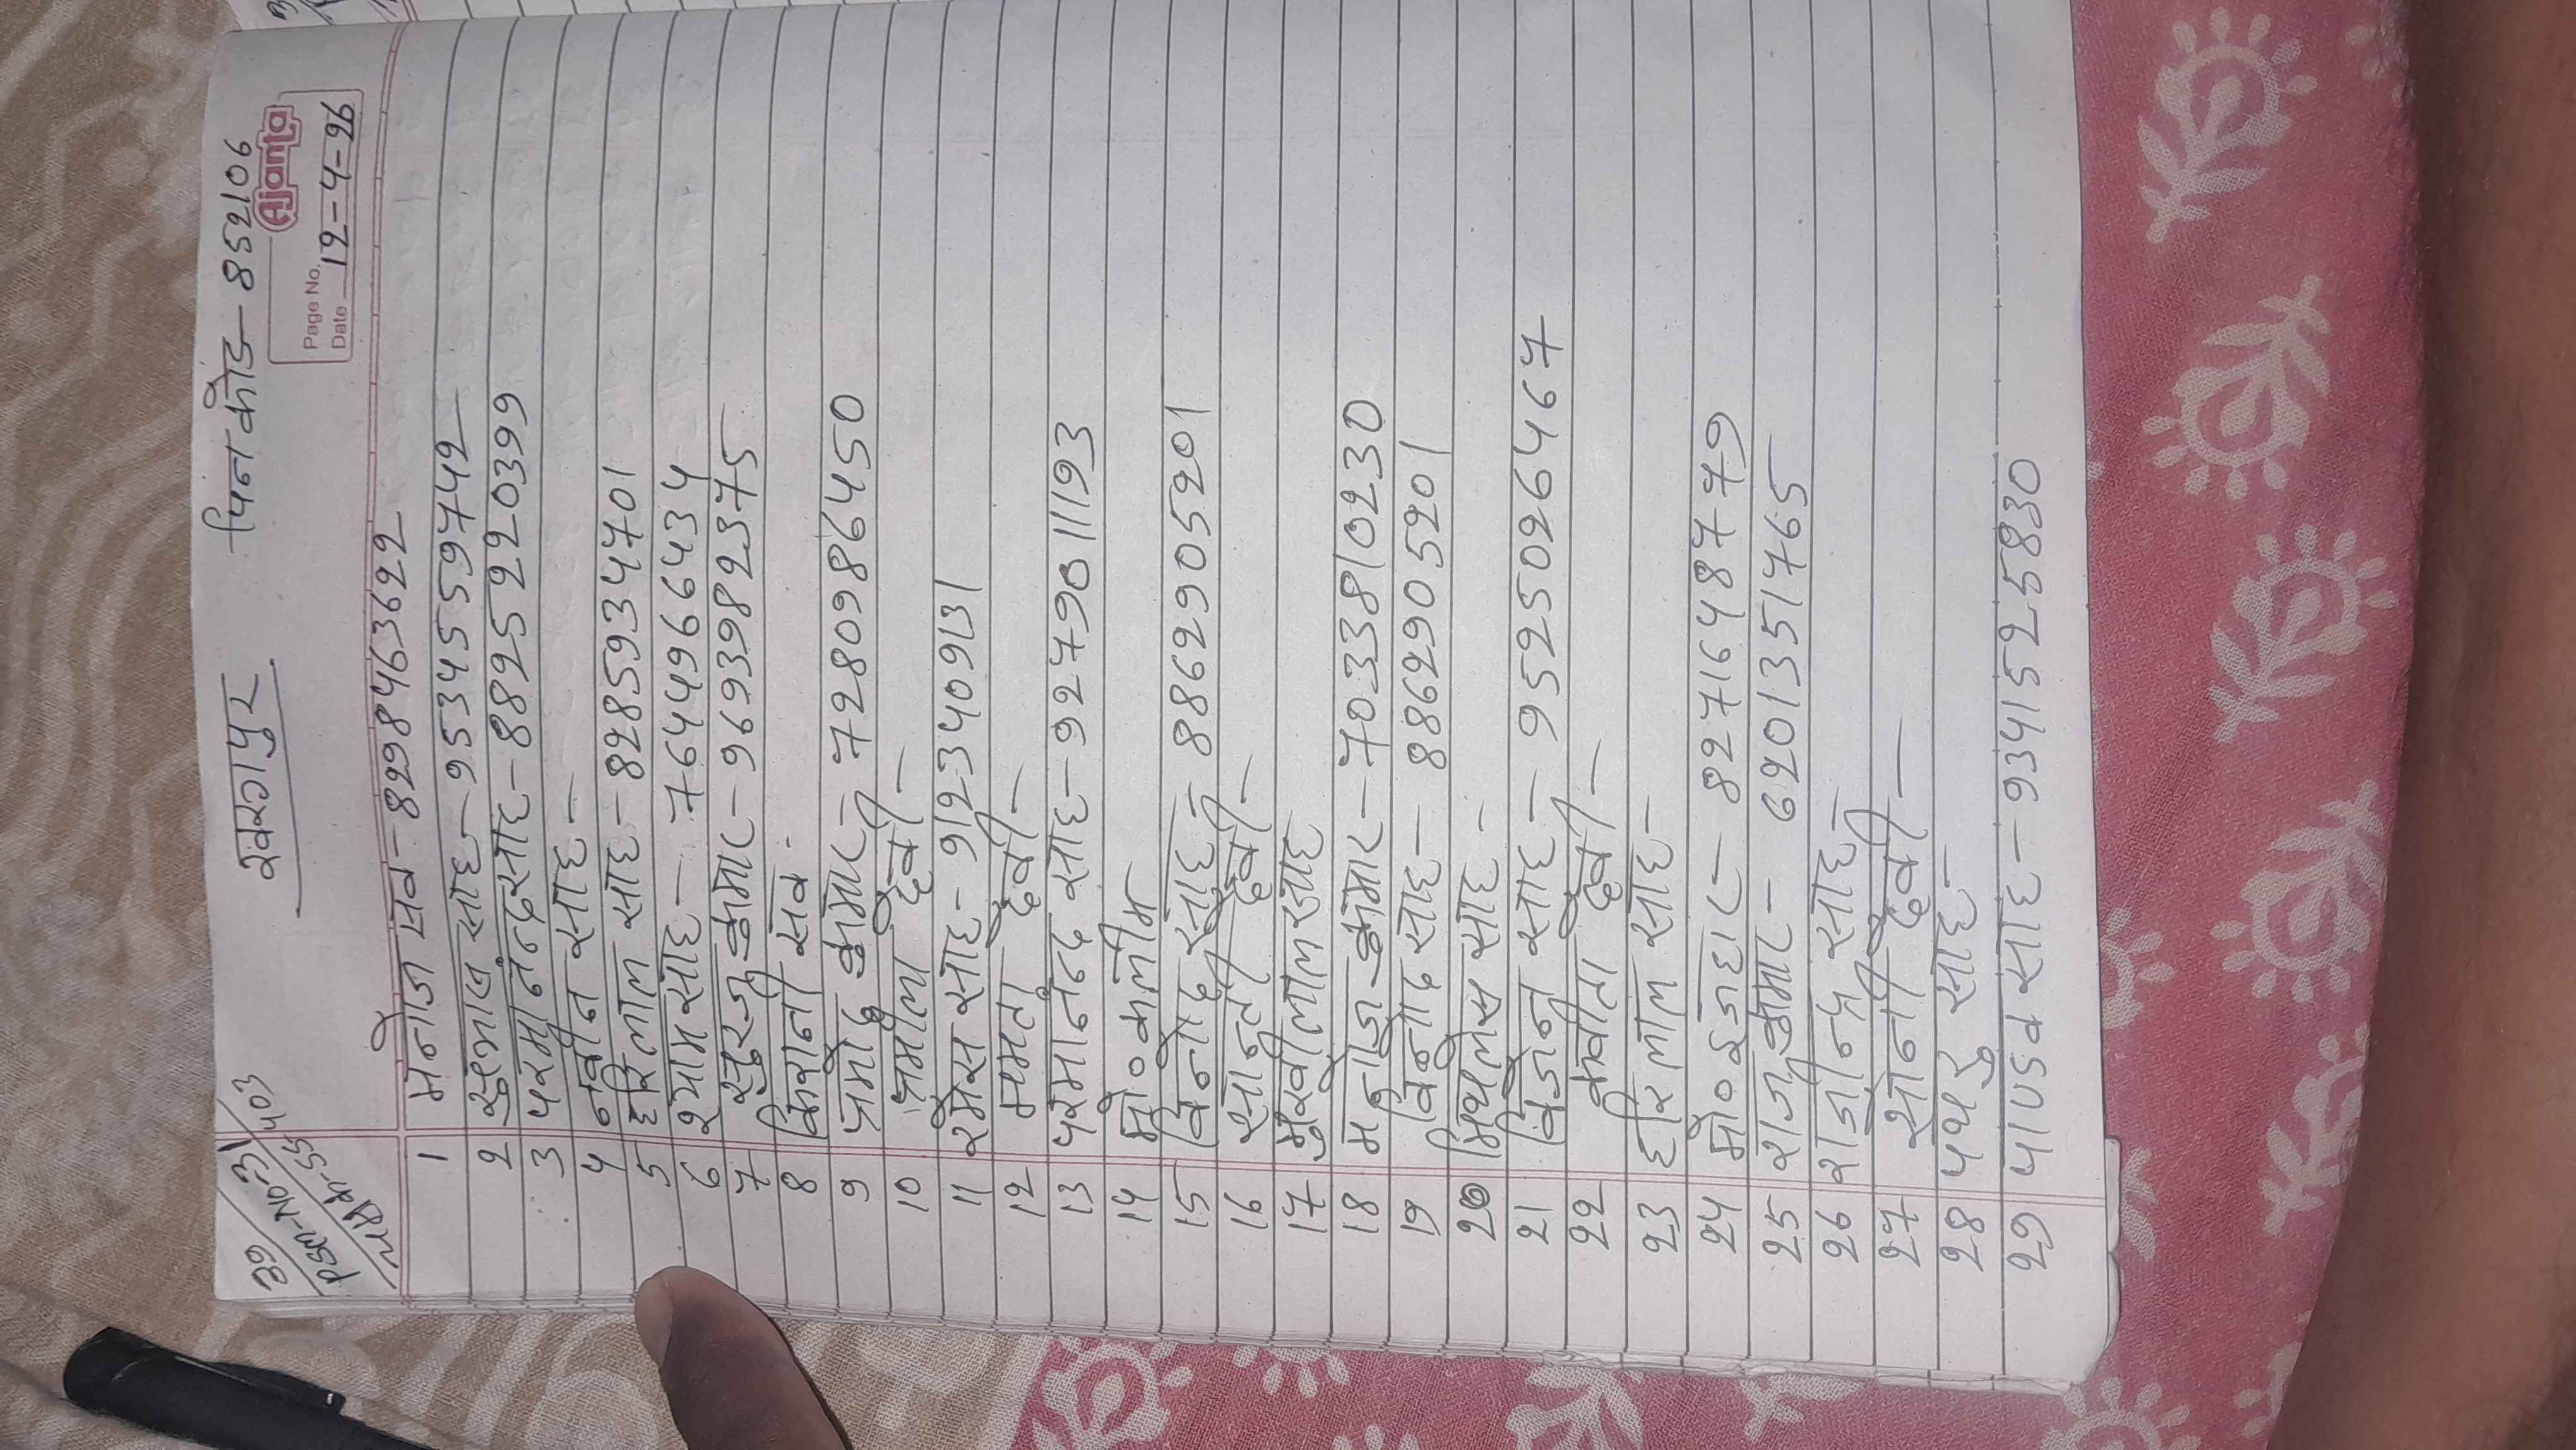 खरगपुर पिन कोड - 852106
39
Ajanta
Page No.
Date 12-4-26
1 मनोज सव - 8298463622
2 सुभाष साह - 9534559742
3 परमानंन्द साह - 8825220399
4 नवीन साह -
5 हरि लाल साह - 8285934701
6 श्याम साह - 7644966434
7 सुरज कुमार - 9693982375
8 किरानी सव
9 प्रमोद कुमार - 7280986450
10 प्रमीला देवी -
11 रमेस साह - 9123409131
12 ममता देवी -
13 परमानन्द साह - 9279011193
14 मो० कलीम
15 विनोद साह - 8862905201
16 सान्ती देवी -
17 मुखी लाल साह
18 मनोज कुमार - 7033810230
19 विनोद साह - 8862905201
20 मिथलेस साह -
21 विजन साह - 9525026467
22 कवीता देवी -
23 हरि लाल साह -
24 मो० इजहार - 8271648779
25 राजू कुमार - 6201351765
26 राजीन्द्र साह -
27 सोनी देवी -
28 पथरु साह -
29 पाण्डव साह - 9341525830